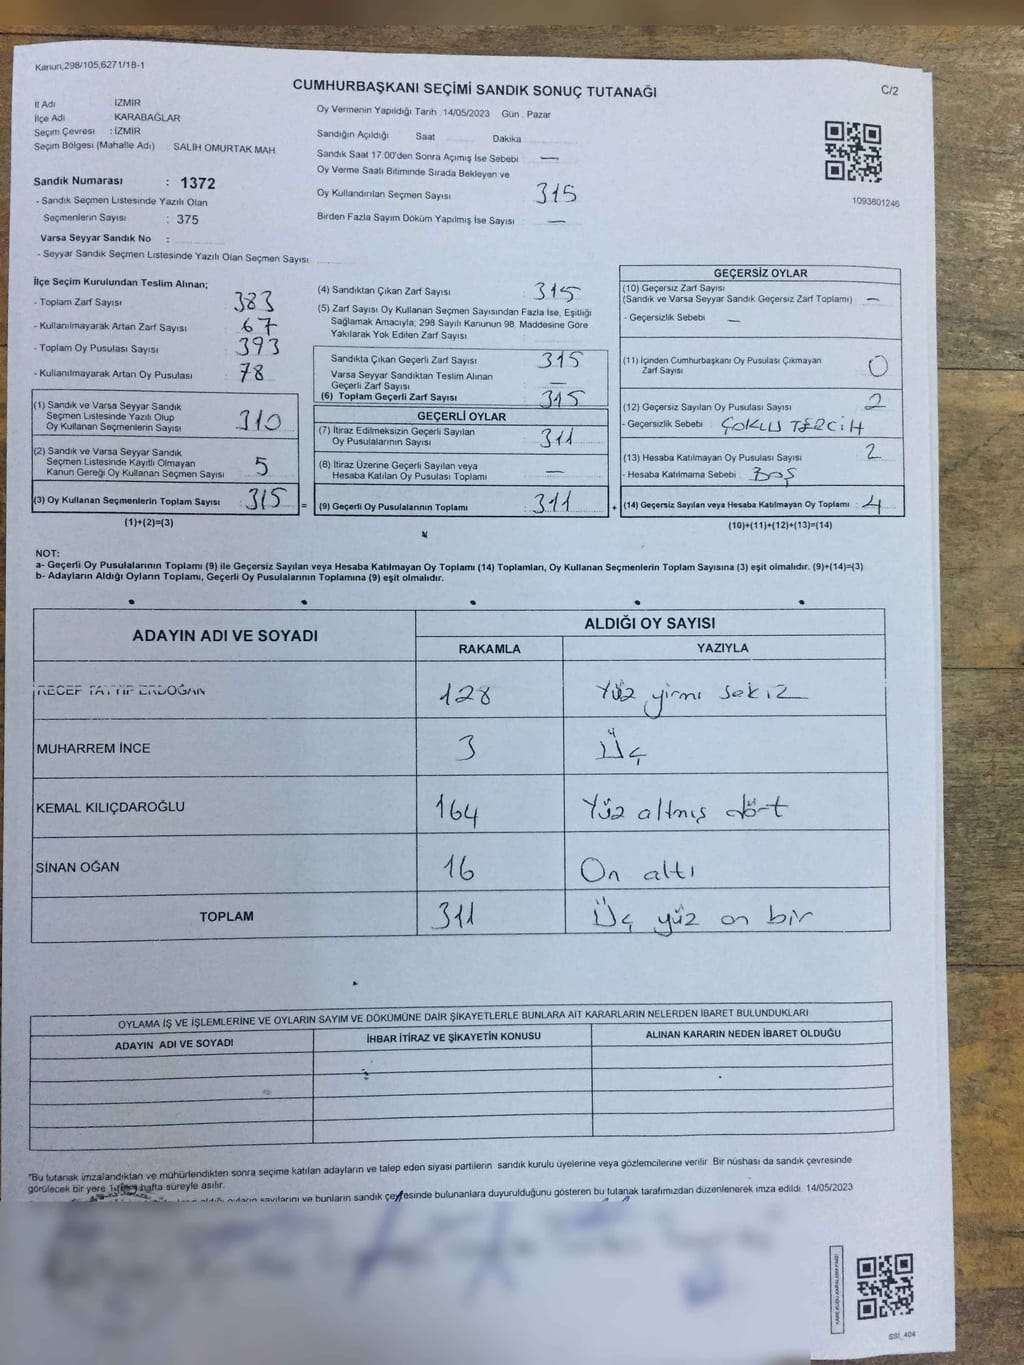 Kanun,298/105,6271/18-1
CUMHURBAŞKANI SEÇİMİ SANDIK SONUÇ TUTANAĞI
C/2
İl Adı İZMİR
İlçe Adı KARABAĞLAR
Seçim Çevresi : İZMİR
Seçim Bölgesi (Mahalle Adı) SALİH OMURTAK MAH.
Sandık Numarası : 1372
- Sandık Seçmen Listesinde Yazılı Olan
Seçmenlerin Sayısı : 375
Varsa Seyyar Sandık No :
- Seyyar Sandık Seçmen Listesinde Yazılı Olan Seçmen Sayısı
Oy Vermenin Yapıldığı Tarih : 14/05/2023 Gün : Pazar
Sandığın Açıldığı Saat Dakika
Sandık Saat 17:00'den Sonra Açımış İse Sebebi —
Oy Verme Saati Bitiminde Sırada Bekleyen ve
Oy Kullandırılan Seçmen Sayısı 315
Birden Fazla Sayım Döküm Yapılmış İse Sayısı —
1093801246
İlçe Seçim Kurulundan Teslim Alınan;
- Toplam Zarf Sayısı 383
- Kullanılmayarak Artan Zarf Sayısı 67
- Toplam Oy Pusulası Sayısı 393
- Kullanılmayarak Artan Oy Pusulası 78
(1) Sandık ve Varsa Seyyar Sandık
Seçmen Listesinde Yazılı Olup
Oy Kullanan Seçmenlerin Sayısı 310
(2) Sandık ve Varsa Seyyar Sandık
Seçmen Listesinde Kayıtlı Olmayan
Kanun Gereği Oy Kullanan Seçmen Sayısı 5
(3) Oy Kullanan Seçmenlerin Toplam Sayısı 315 =
(1)+(2)=(3)
(4) Sandıktan Çıkan Zarf Sayısı 315
(5) Zarf Sayısı Oy Kullanan Seçmen Sayısından Fazla İse, Eşitliği
Sağlamak Amacıyla; 298 Sayılı Kanunun 98. Maddesine Göre
Yakılarak Yok Edilen Zarf Sayısı
Sandıkta Çıkan Geçerli Zarf Sayısı 315
Varsa Seyyar Sandıktan Teslim Alınan
Geçerli Zarf Sayısı —
(6) Toplam Geçerli Zarf Sayısı 315
GEÇERLİ OYLAR
(7) İtiraz Edilmeksizin Geçerli Sayılan
Oy Pusulalarının Sayısı 311
(8) İtiraz Üzerine Geçerli Sayılan veya
Hesaba Katılan Oy Pusulası Toplamı —
(9) Geçerli Oy Pusulalarının Toplamı 311 +
GEÇERSİZ OYLAR
(10) Geçersiz Zarf Sayısı
(Sandık ve Varsa Seyyar Sandık Geçersiz Zarf Toplamı) —
- Geçersizlik Sebebi —
(11) İçinden Cumhurbaşkanı Oy Pusulası Çıkmayan
Zarf Sayısı 0
(12) Geçersiz Sayılan Oy Pusulası Sayısı 2
- Geçersizlik Sebebi ÇOKLU TERCİH
(13) Hesaba Katılmayan Oy Pusulası Sayısı 2
- Hesaba Katılmama Sebebi BOŞ
(14) Geçersiz Sayılan veya Hesaba Katılmayan Oy Toplamı 4
(10)+(11)+(12)+(13)=(14)
NOT:
a- Geçerli Oy Pusulalarının Toplamı (9) ile Geçersiz Sayılan veya Hesaba Katılmayan Oy Toplamı (14) Toplamları, Oy Kullanan Seçmenlerin Toplam Sayısına (3) eşit olmalıdır. (9)+(14)=(3)
b- Adayların Aldığı Oyların Toplamı, Geçerli Oy Pusulalarının Toplamına (9) eşit olmalıdır.
ADAYIN ADI VE SOYADI ALDIĞI OY SAYISI
RAKAMLA YAZIYLA
RECEP TAYYİP ERDOĞAN 128 Yüz yirmi sekiz
MUHARREM İNCE 3 Üç
KEMAL KILIÇDAROĞLU 164 Yüz altmış dört
SİNAN OĞAN 16 On altı
TOPLAM 311 Üç yüz on bir
OYLAMA İŞ VE İŞLEMLERİNE VE OYLARIN SAYIM VE DÖKÜMÜNE DAİR ŞİKAYETLERLE BUNLARA AİT KARARLARIN NELERDEN İBARET BULUNDUKLARI
ADAYIN ADI VE SOYADI İHBAR İTİRAZ VE ŞİKAYETİN KONUSU ALINAN KARARIN NEDEN İBARET OLDUĞU
"Bu tutanak imzalandıktan ve mühürlendikten sonra seçime katılan adayların ve talep eden siyasi partilerin sandık kurulu üyelerine veya gözlemcilerine verilir. Bir nüshası da sandık çevresinde
görülecek bir yere hafta süreyle asılır.
oyların sayılarını ve bunların sandık çevresinde bulunanlara duyurulduğunu gösteren bu tutanak tarafımızdan düzenlenerek imza edildi. 14/05/2023
SSİ_404